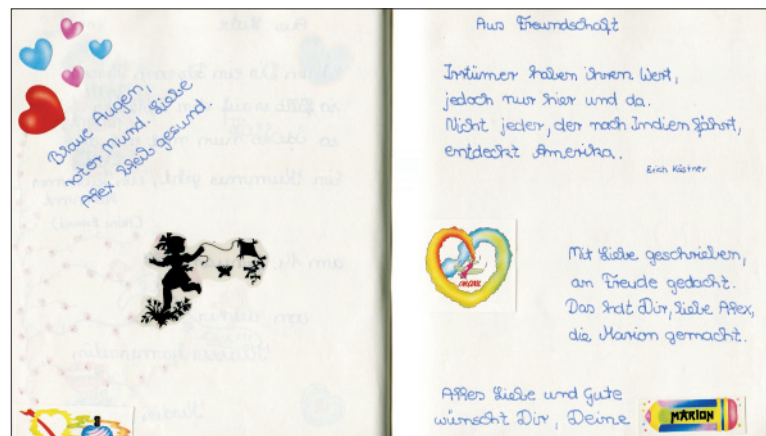 Blaue Augen,
roter Mund. Liebe
Alex bleib gesund.
Aus Freundschaft
Irrtümer haben ihren Wert,
jedoch nur hier und da.
Nicht jeder, der nach Indien fährt,
entdeckt Amerika.
Erich Kästner
Mit Liebe geschrieben,
an Freude gedacht.
Das hat Dir, liebe Alex,
die Marion gemacht.
Alles Liebe und Gute
wünscht Dir, Deine
MARION